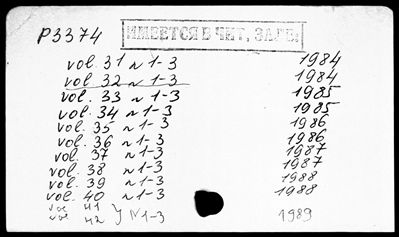 P3374 ИМЕЕТСЯ В ЧИТ. ЗАЛЕ.
vol. 31 N 1-3 1984
vol. 32 N 1-3 1984
vol. 33 N 1-3 1985
vol. 34 N 1-3 1985
vol. 35 N 1-3 1986
vol. 36 N 1-3 1986
vol. 37 N 1-3 1987
vol. 38 N 1-3 1987
vol. 39 N 1-3 1988
vol. 40 N 1-3 1988
vol 41
vol 42 } N 1-3 1989